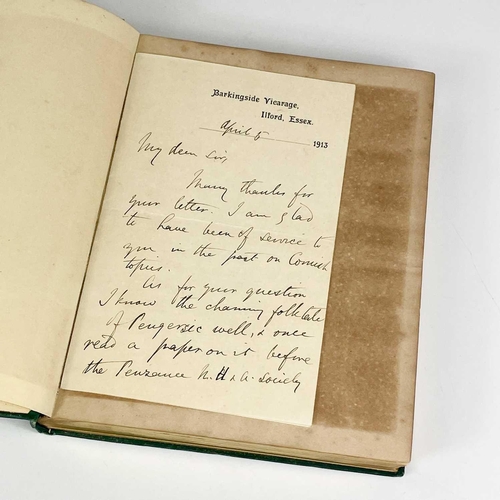 Barkingside Vicarage,
Ilford, Essex.
April 5 1913
My dear Sir,
Many thanks for
your letter. I am glad
to have been of service to
you in the past on Cornish
topics.
As for your question
I know the charming folktale
of Pengersec well, & once
read a paper on it before
the Penzance N. H. & A. Society